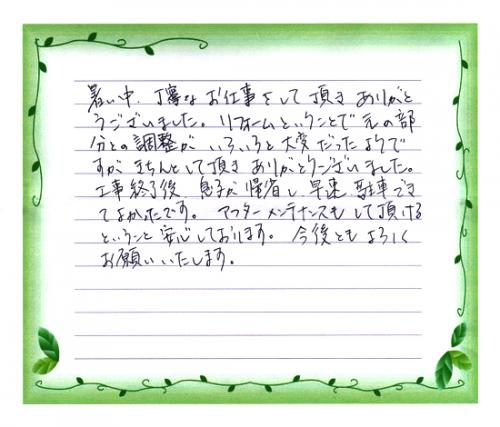 暑い中、丁寧なお仕事をして頂き ありがと
うございました。リフォームということで 元の部
分との調整が いろいろと大変だったようで
すが きちんとして頂き ありがとうございました。
工事終了後 息子が帰省し 早速 駐車でき
てよかったです。アフターメンテナンスもして頂ける
ということ 安心しております。今後とも よろしく
お願いいたします。